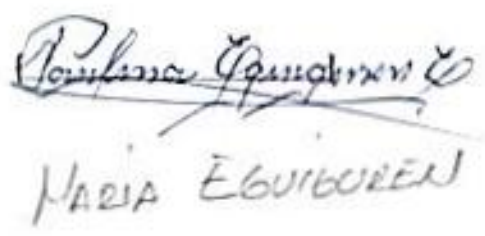 Paulina Eguiguren E
MARIA EGUIGUREN